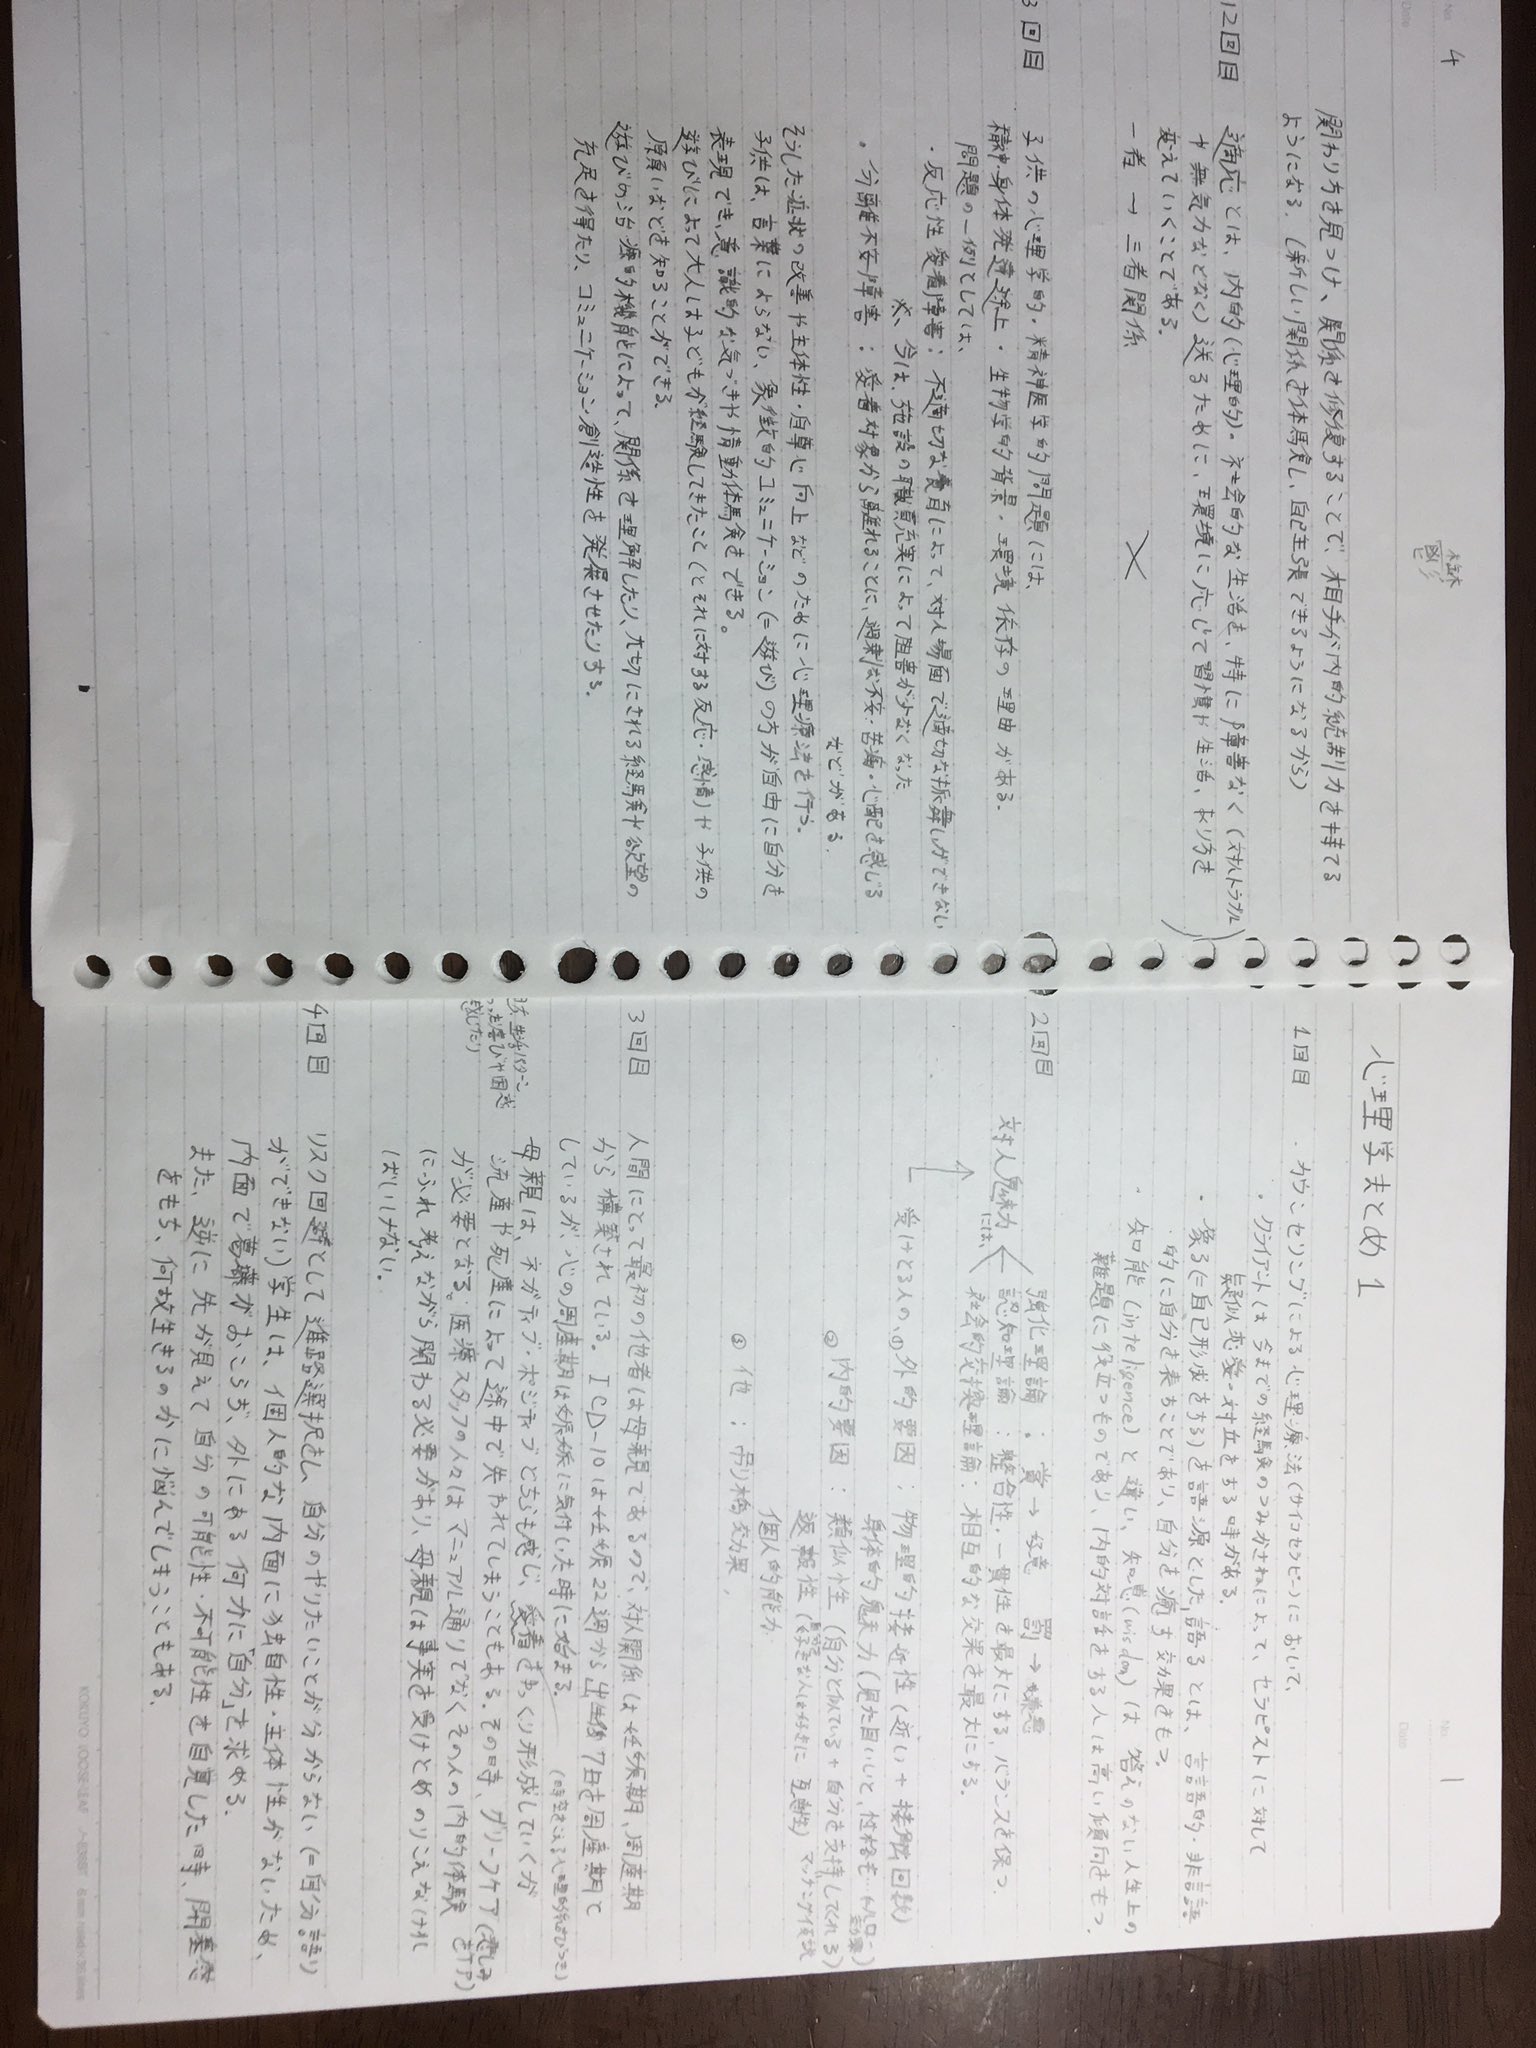 No. 4
Date
関わり方を見つけ、関係を修復することで、相手が内的統制力を持てる
ようになる。(新しい関係を体験し、自己主張できるようになるから)
12回目
適応とは、内的(心理的)・社会的な生活を、特に障害なく(対人トラブル
や無気力などなく)送るために、環境に応じて習慣や生活、あり方を
変えていくことである。
一者 → 三者関係
3回目
子供の心理学的・精神医学的問題には、
精神・身体発達途上・生物学的背景・環境依存の理由がある。
問題の一例としては、
・反応性愛着障害：不適切な養育によって、対人場面で適切な振舞いができない
※、今は、施設の職員充実によって阻害が少なくなった
・分離不安障害：愛着対象から離れることに、過剰な不安・苦痛・心配を感じる
などがある。
そうした症状の改善や主体性・自尊心向上などのために心理療法を行う。
子供は、言葉によらない、象徴的コミュニケーション(=遊び)の方が自由に自分を
表現でき、意識的な気づきや情動体験をできる。
遊びによって大人は子どもが経験してきたこと(とそれに対する反応・感情)や子供の
願いなどを知ることができる。
遊びの治療的機能によって、関係を理解したり、大切にされる経験や欲望の
充足を得たり、コミュニケーション創造性を発展させたりする。
No. 1
Date
心理学まとめ1
1回目
・カウンセリングによる心理療法(サイコセラピー)において、
・クライアントは今までの経験のつみかさねによって、セラピストに対して
疑似恋愛・対立をする時がある。
・象る(=自己形成をする)を語源とした「語る」とは、言語的・非言語
的に自分を表すことであり、自分を癒す効果をもつ。
・知能(inteligence)と違い、知恵(wisdom)は答えのない人生上の
難題に役立つものであり、内的対話をする人は高い傾向をもつ。
2回目
対人魅力には、
強化理論：賞→好意 罰→嫌悪
認知理論：整合性・一貫性を最大にする、バランスを保つ。
社会的交換理論：相互的な効果を最大にする。
受けとる人の、①外的要因：物理的接近性(近い+接触回数)
身体的魅力(見た目いいと、性格も…ハロー効果)
②内的要因：類似性(自分と似ている+自分を支持してくれる)
返報性(自分を好きな人は好きに 互恵性)マッチング仮説
個人的能力
③他：吊り橋効果、
3回目
人間にとって最初の他者は母親であるので、対人関係は妊娠期、周産期
から構築されている。ICD-10は妊娠22週から出生後7日を周産期と
しているが、心の周産期は妊娠に気付いた時に始まる。
母親は、ネガティブ・ポジティブどちらも感じ、愛着をゆっくり形成していくが
流産や死産によって途中で失われてしまうこともある。その時、グリーフケア(悲しみをケア)
が必要となる。医療スタッフの人々はマニュアル通りでなくその人の内的体験
にふれ考えながら関わる必要があり、母親は事実を受けとめのりこえなければ
ばいけない。
4回目
リスク回避として進路選択をし、自分のやりたいことが分からない(=自分語り
ができない)学生は、個人的な内面に独自性・主体性がないため、
内面で葛藤がおこらず、外にある何かに「自分」を求める。
また、逆に先が見えて自分の可能性・不可能性を自覚した時、閉塞感
をもち、何故生きるのかに悩んでしまうこともある。